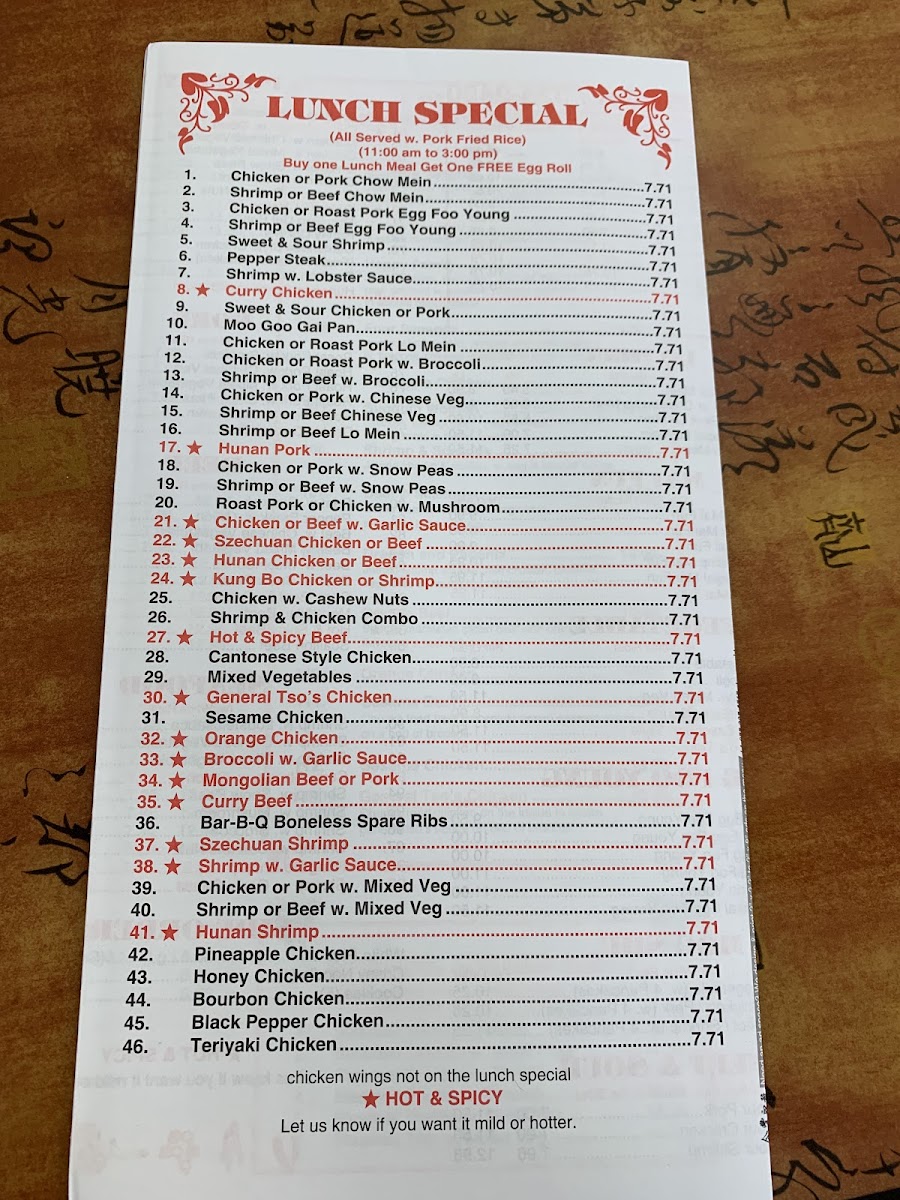 LUNCH SPECIAL
(All Served w. Pork Fried Rice)
(11:00 am to 3:00 pm)
Buy one Lunch Meal Get One FREE Egg Roll
1. Chicken or Pork Chow Mein 7.71
2. Shrimp or Beef Chow Mein 7.71
3. Chicken or Roast Pork Egg Foo Young 7.71
4. Shrimp or Beef Egg Foo Young 7.71
5. Sweet & Sour Shrimp 7.71
6. Pepper Steak 7.71
7. Shrimp w. Lobster Sauce 7.71
8. ★ Curry Chicken 7.71
9. Sweet & Sour Chicken or Pork 7.71
10. Moo Goo Gai Pan 7.71
11. Chicken or Roast Pork Lo Mein 7.71
12. Chicken or Roast Pork w. Broccoli 7.71
13. Shrimp or Beef w. Broccoli 7.71
14. Chicken or Pork w. Chinese Veg 7.71
15. Shrimp or Beef Chinese Veg 7.71
16. Shrimp or Beef Lo Mein 7.71
17. ★ Hunan Pork 7.71
18. Chicken or Pork w. Snow Peas 7.71
19. Shrimp or Beef w. Snow Peas 7.71
20. Roast Pork or Chicken w. Mushroom 7.71
21. ★ Chicken or Beef w. Garlic Sauce 7.71
22. ★ Szechuan Chicken or Beef 7.71
23. ★ Hunan Chicken or Beef 7.71
24. ★ Kung Bo Chicken or Shrimp 7.71
25. Chicken w. Cashew Nuts 7.71
26. Shrimp & Chicken Combo 7.71
27. ★ Hot & Spicy Beef 7.71
28. Cantonese Style Chicken 7.71
29. Mixed Vegetables 7.71
30. ★ General Tso's Chicken 7.71
31. Sesame Chicken 7.71
32. ★ Orange Chicken 7.71
33. ★ Broccoli w. Garlic Sauce 7.71
34. ★ Mongolian Beef or Pork 7.71
35. ★ Curry Beef 7.71
36. Bar-B-Q Boneless Spare Ribs 7.71
37. ★ Szechuan Shrimp 7.71
38. ★ Shrimp w. Garlic Sauce 7.71
39. Chicken or Pork w. Mixed Veg 7.71
40. Shrimp or Beef w. Mixed Veg 7.71
41. ★ Hunan Shrimp 7.71
42. Pineapple Chicken 7.71
43. Honey Chicken 7.71
44. Bourbon Chicken 7.71
45. Black Pepper Chicken 7.71
46. Teriyaki Chicken 7.71
chicken wings not on the lunch special
★ HOT & SPICY
Let us know if you want it mild or hotter.